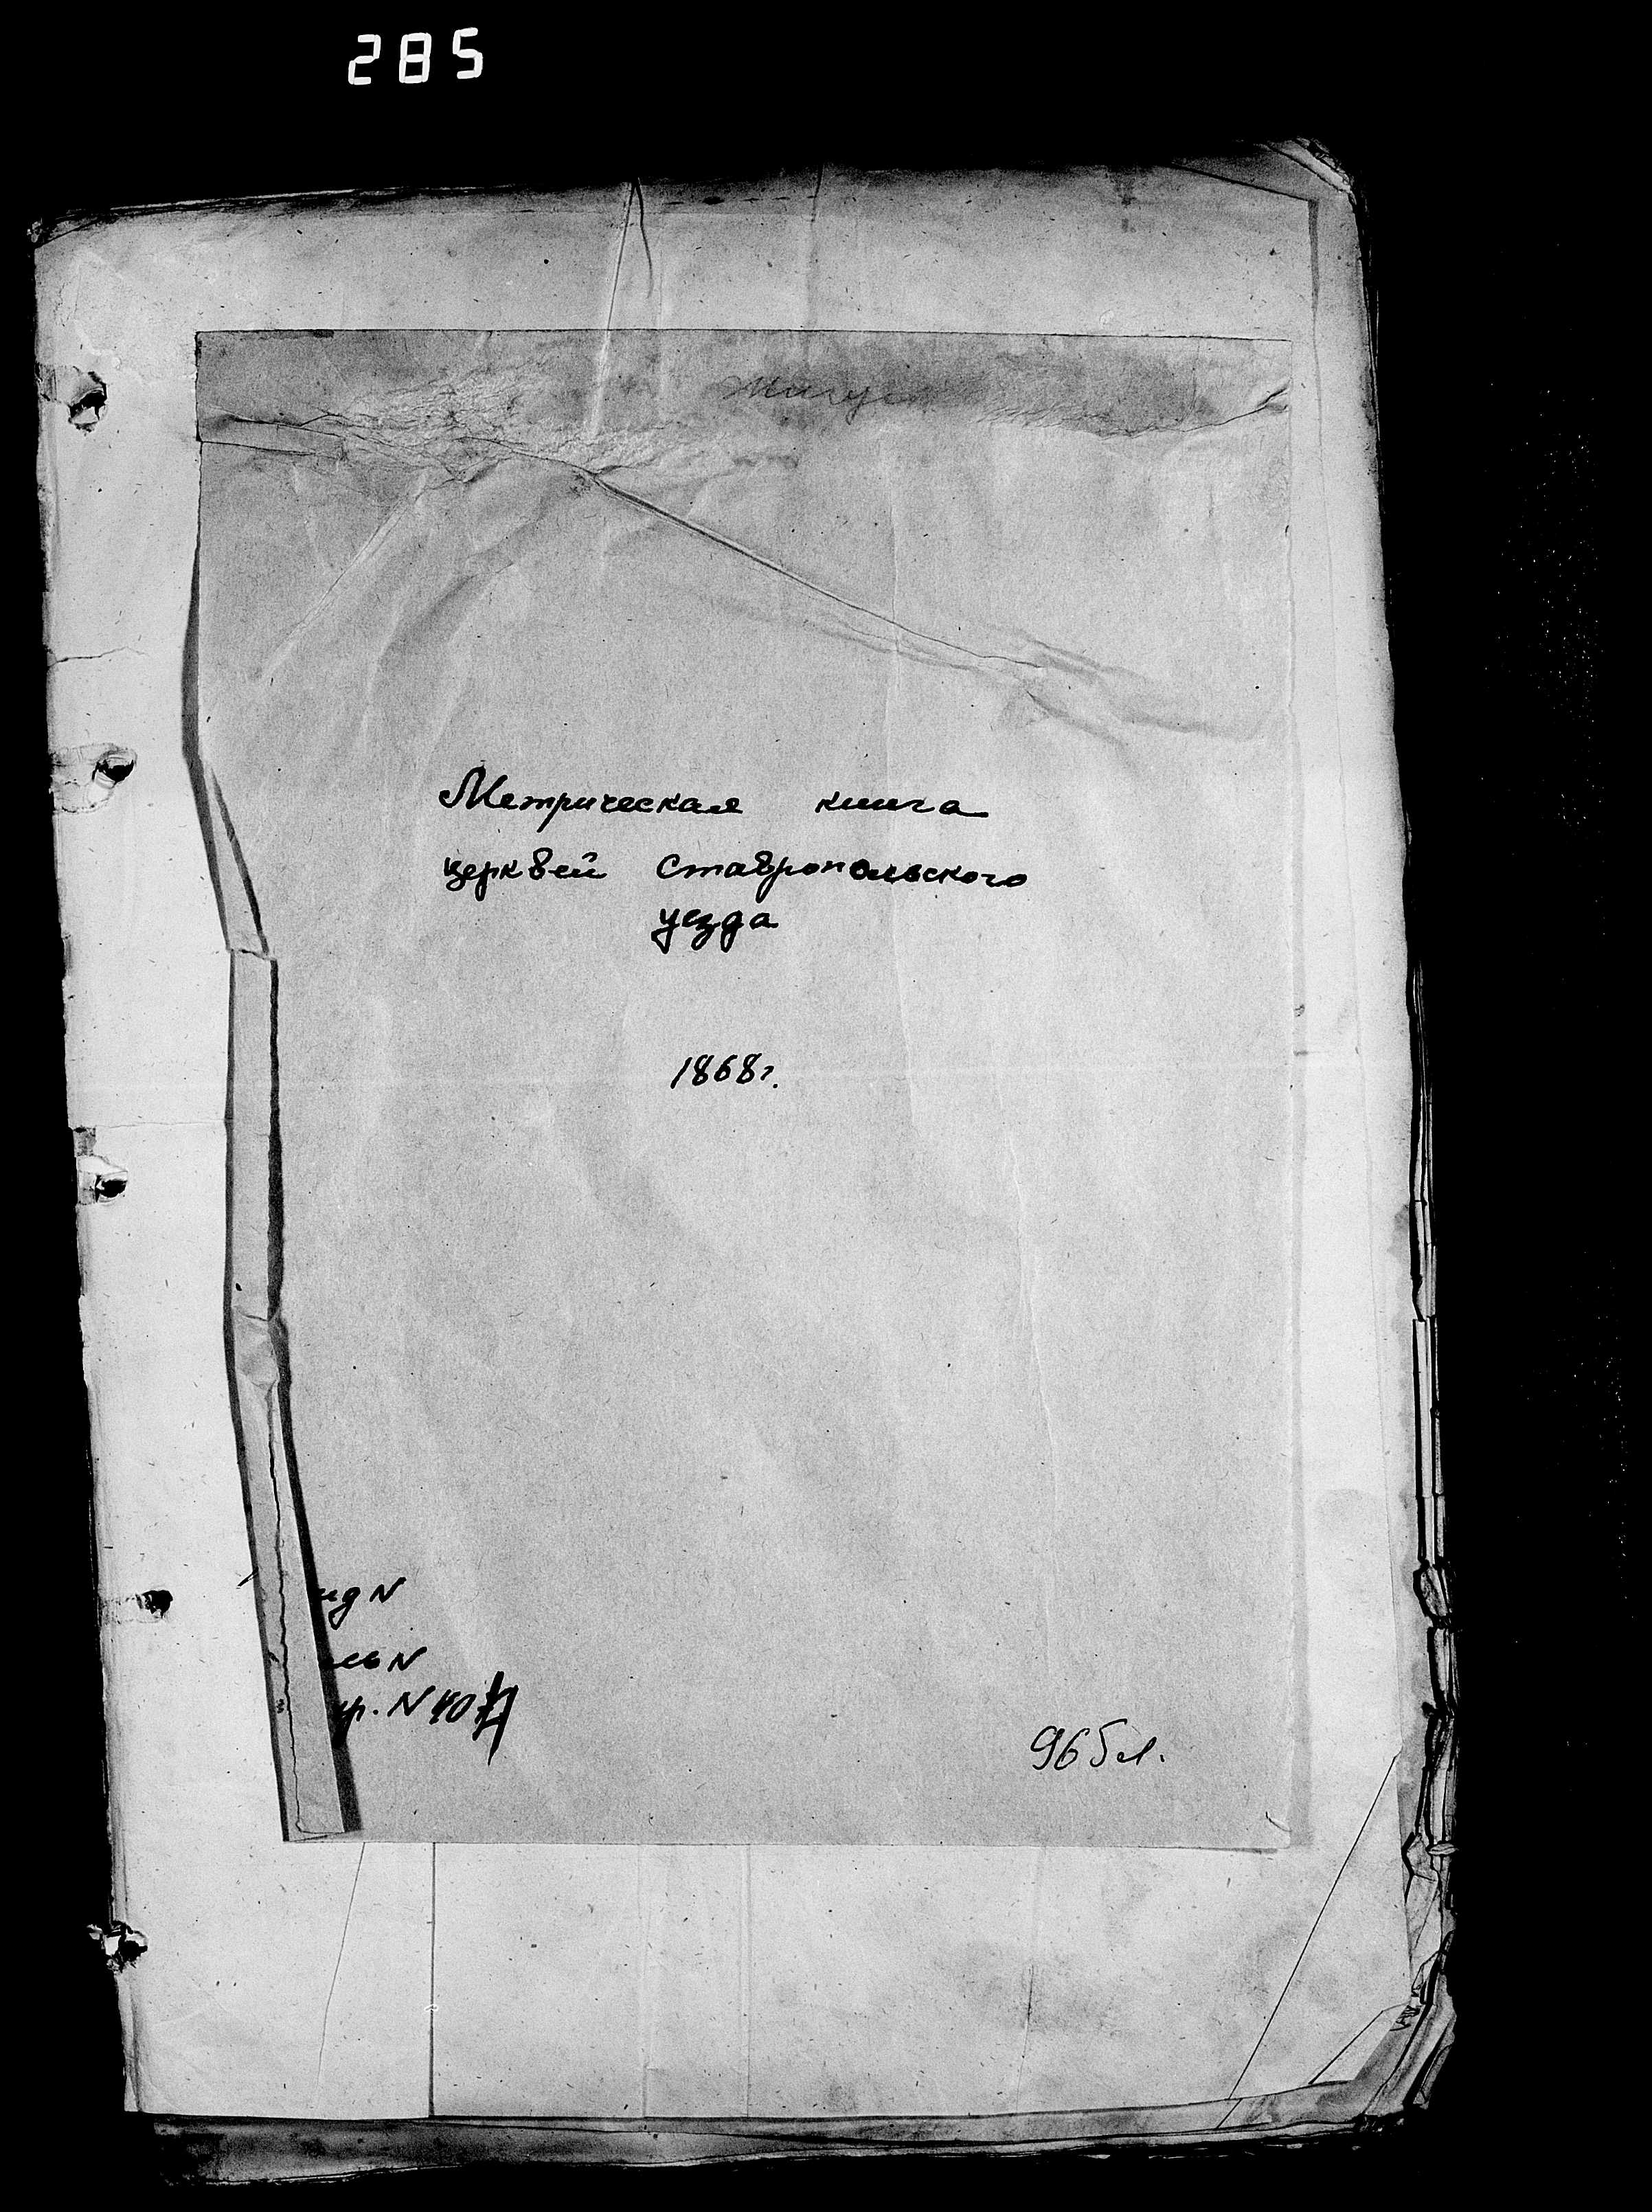 285
Метрическая книга
церквей Ставропольского
уезда
1868г.
нд N
сь N
р. N
965 л.